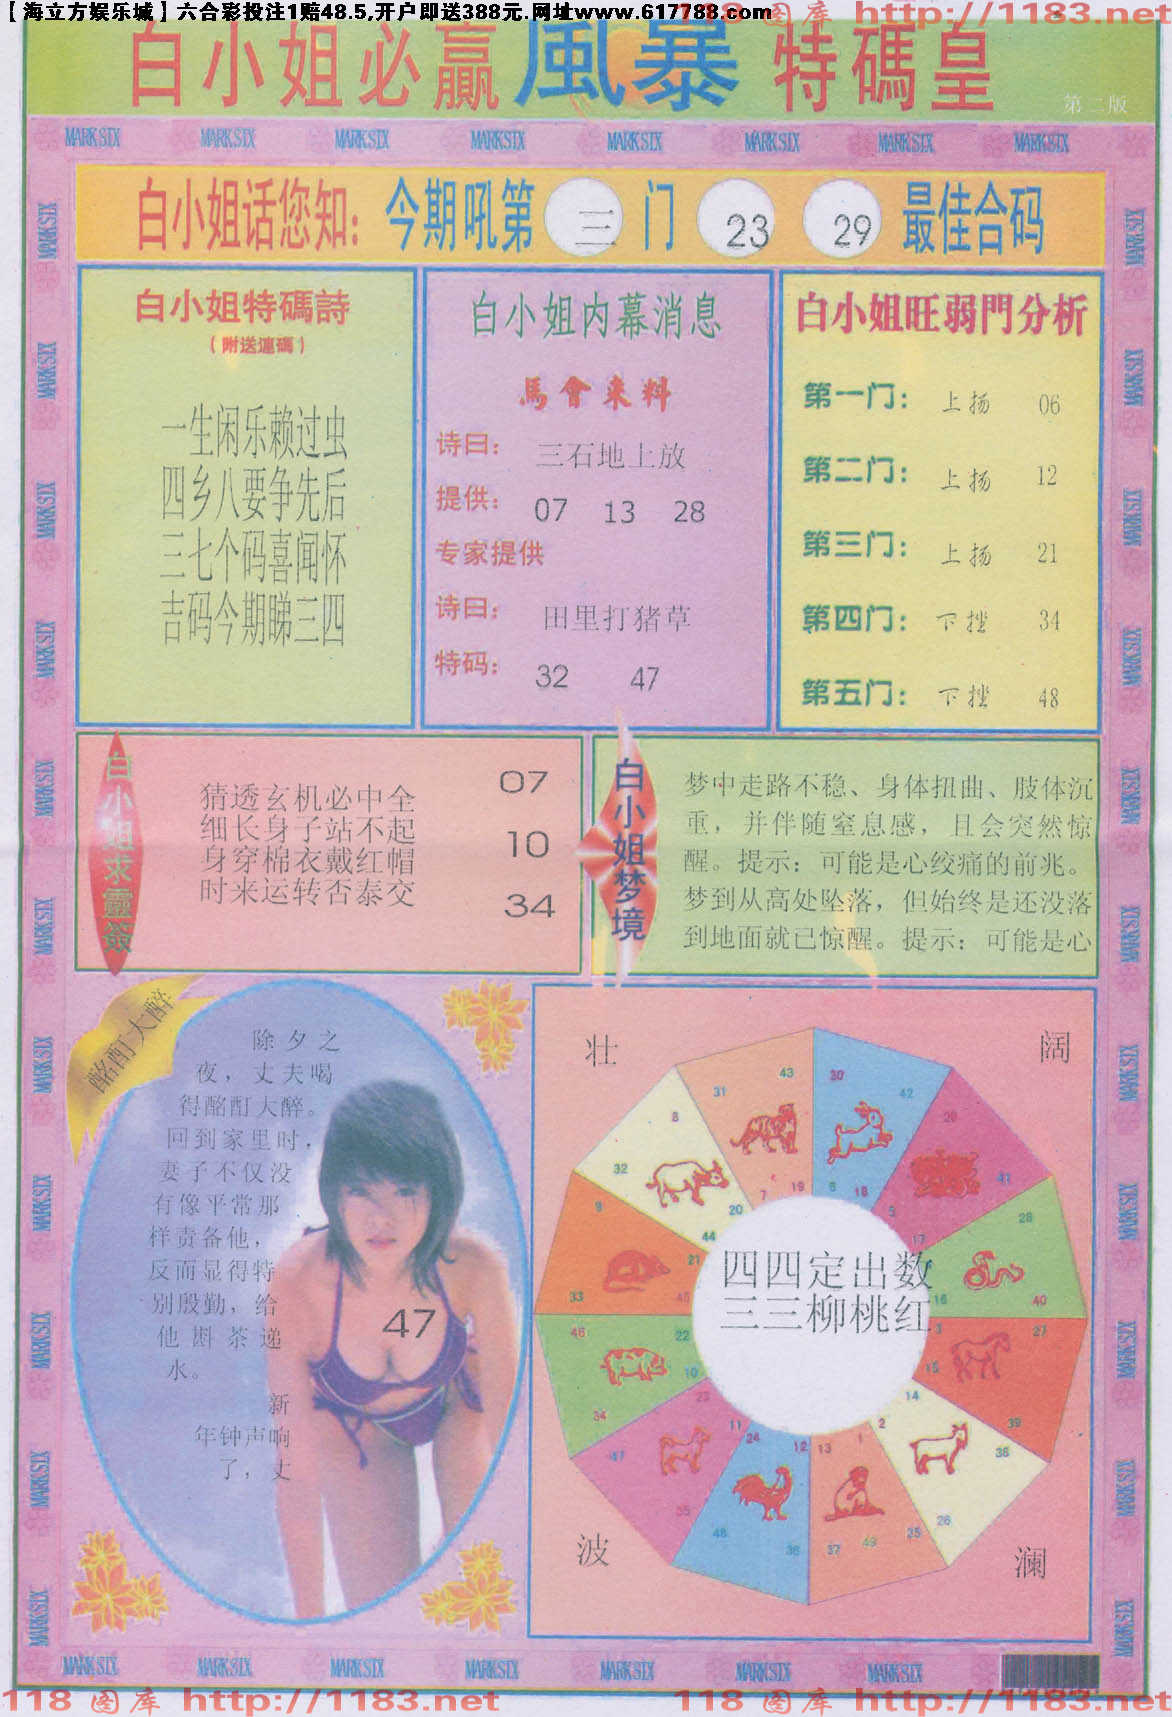 【海立方娱乐城】六合彩投注1赔48.5,开户即送388元.网址www.617788.com
118 图库 http://1183.net
白小姐必赢風暴特碼皇
第二版
MARK SIX MARK SIX MARK SIX MARK SIX MARK SIX MARK SIX MARK SIX MARK SIX
白小姐话您知: 今期吼第 三 门 23 29 最佳合码
白小姐特碼詩
(附送連碼)
一生闲乐赖过虫
四乡八要争先后
三七个码喜闻怀
吉码今期睇三四
白小姐内幕消息
馬會来料
诗曰: 三石地上放
提供: 07 13 28
专家提供
诗曰: 田里打猪草
特码: 32 47
白小姐旺弱門分析
第一门: 上扬 06
第二门: 上扬 12
第三门: 上扬 21
第四门: 下挫 34
第五门: 下挫 48
白小姐求靈簽
猜透玄机必中全
细长身子站不起
身穿棉衣戴红帽
时来运转否泰交
07
10
34
白小姐梦境
梦中走路不稳、身体扭曲、肢体沉
重，并伴随窒息感，且会突然惊
醒。提示：可能是心绞痛的前兆。
梦到从高处坠落，但始终是还没落
到地面就已惊醒。提示：可能是心
酩酊大醉
除夕之
夜，丈夫喝
得酩酊大醉。
回到家里时，
妻子不仅没
有像平常那
样责备他，
反而显得特
别殷勤，给
他斟茶递
水。
新
年钟声响
了，丈
47
壮
阔
43 30
31 42
8 29
32 41
7 19 6 18
20 5
9 44 17 28
21 16
33 45 40
46 22 3 27
10 15
34 23 14
11 2 39
47 24 12 13 1 38
35 26
48 36 37 49 25
四四定出数
三三柳桃红
波
澜
MARK SIX MARK SIX MARK SIX MARK SIX MARK SIX MARK SIX MARK SIX
118 图库 http://1183.net
118 图库 http://1183.net